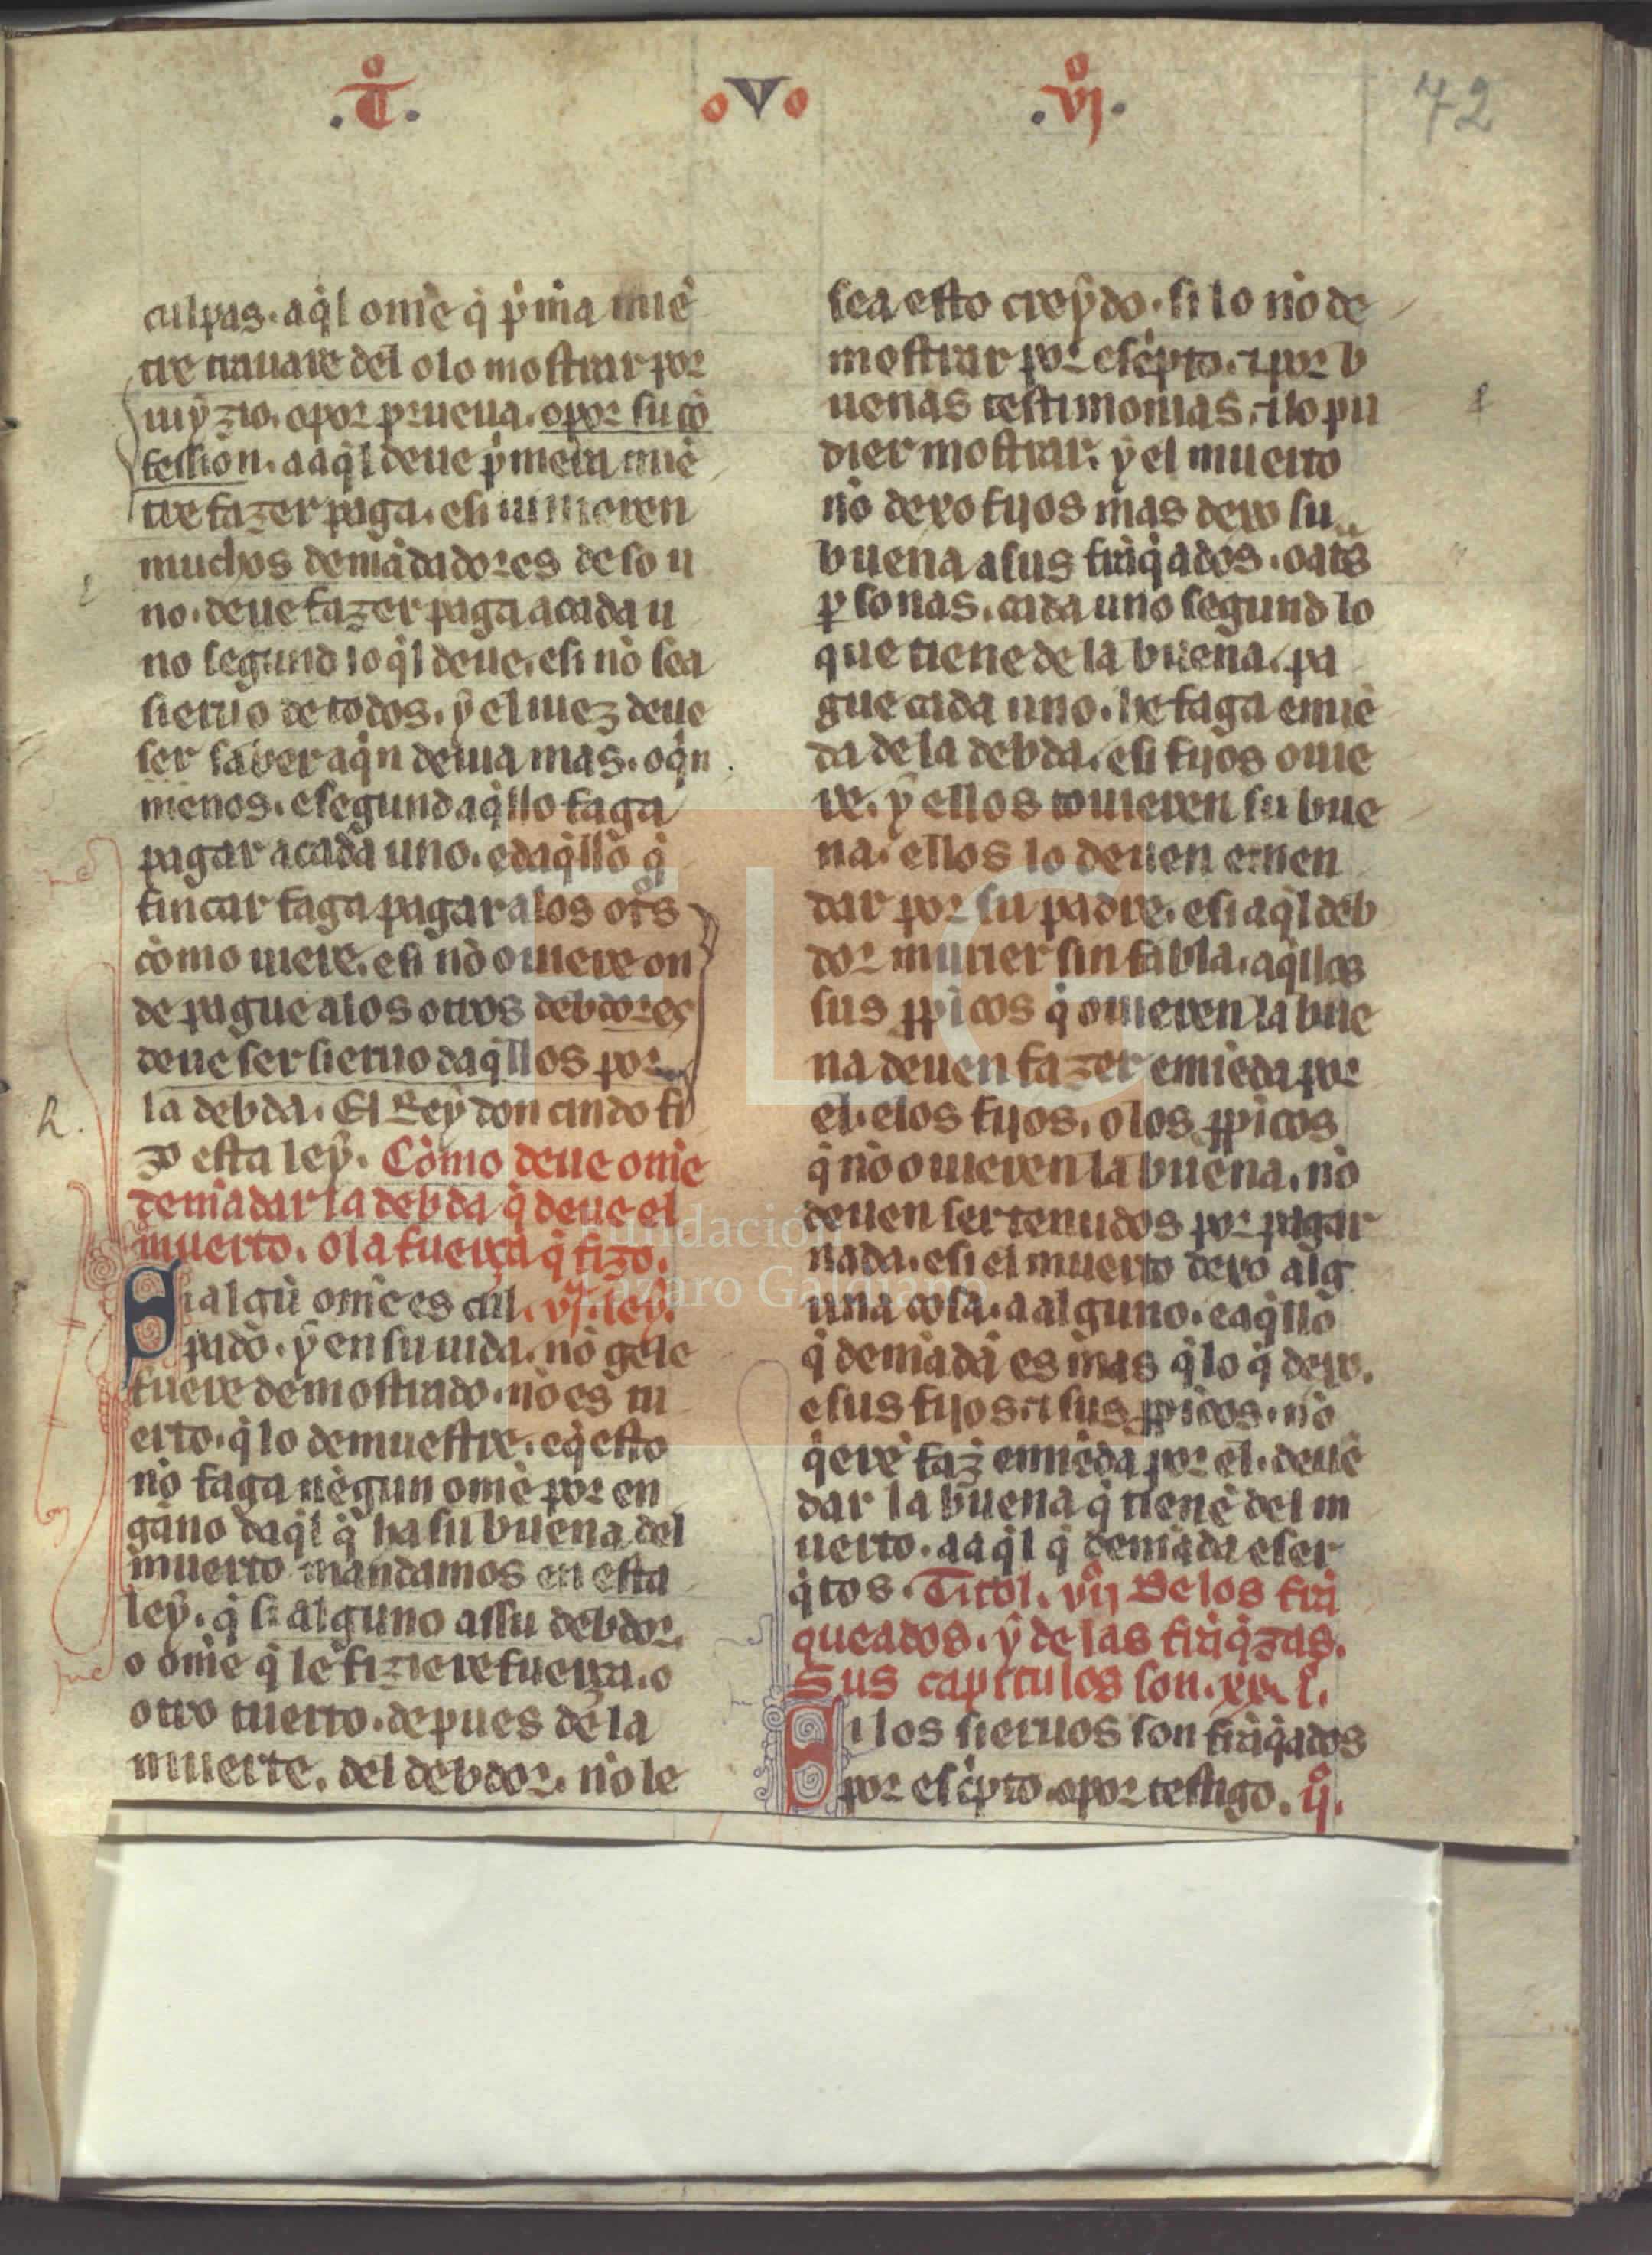 .t̊. oVo .vı̊. 72
culpas. aq̇l om̄e q̇ ṗm̄a mıē
tre trauare del o lo mostrar por
iuyzio. o por prueua. o por su cō
fession. a aq̇l deue ṗmera miē
tre fazer paga. e si uinieren
muchos demādadores de so u
no. deue fazer paga a cada u
no segund lo q̇l deue. e si nō sea
sieruo de todos. ẏ el iuez deue
ser saber a q̇n deuia mas. o q̇n
menos. e segund aq̇llo faga
pagar a cada uno. e daq̇llo q̇
fincar faga pagar a los ot̊s
cōmo uiere. e si nō ouiere on
de pague a los otros debdores
deue ser sieruo daq̇llos por
la debda. El Rey don cindo fi
zo esta ley. Cōmo deue om̄e
demādar la debda q̇ deue el
muerto. o la fuerça q̇ fizo.
Si algū om̄e es cul. vj. ley.
pado. ẏ en su uida. nō gele
fuere demostrado. nō es tu
erto. q̇ lo demuestre. e q̇ esto
nō faga nēgun om̄e por en
gano daq̇l q̇ ha su buena del
muerto mandamos en esta
ley. q̇ si alguno assu debdor.
o om̄e q̇ le fiziere fuerça. o
otro tuerto. depues de la
muerte. del debdor. nō le
sea esto creydo. si lo nō de
mostrar por escṗto. ⁊ por b
uenas testimonias. ⁊ lo pu
dier mostrar. ẏ el muerto
nō dexo fijos mas dexo su
buena a sus frāq̇ados. o a ots̄
p̱sonas. cada uno segund lo
que tiene de la buena. pa
gue cada uno. he faga emiē
da de la debda. e si fijos ouie
re. ẏ ellos touieren su bue
na. ellos lo deuen emen
dar por su padre. e si aq̇l deb
dor murier sin fabla. aq̇llos
sus ꝓp̄icos q̇ ouieren la bue
na deuen fazer emiēda por
el. e los fijos. o los ꝓp̄icos
q̇ nō ouieren la buena. nō
deuen ser tenudos por pagar
nada. e si el muerto dexo alg
una cosa. a alguno. e aq̇llo
q̇ demādā es mas q̇ lo q̇ dexo.
e sus fijos. ⁊ sus ꝓp̄icos. nō
q̇erē faz̄ emiēda por el. deuē
dar la buena q̇ tienē del m
uerto. a aq̇l q̇ demāda e ser
q̇tos. Titol. vıj De los frā
queados. ẏ de las frāq̇zas.
Sus capitulos son. xx. l.
Si los sieruos son frāq̇ados
por escṗto. o por testigo. ij.
h.
FLG
Fundación
Lázaro Galdiano